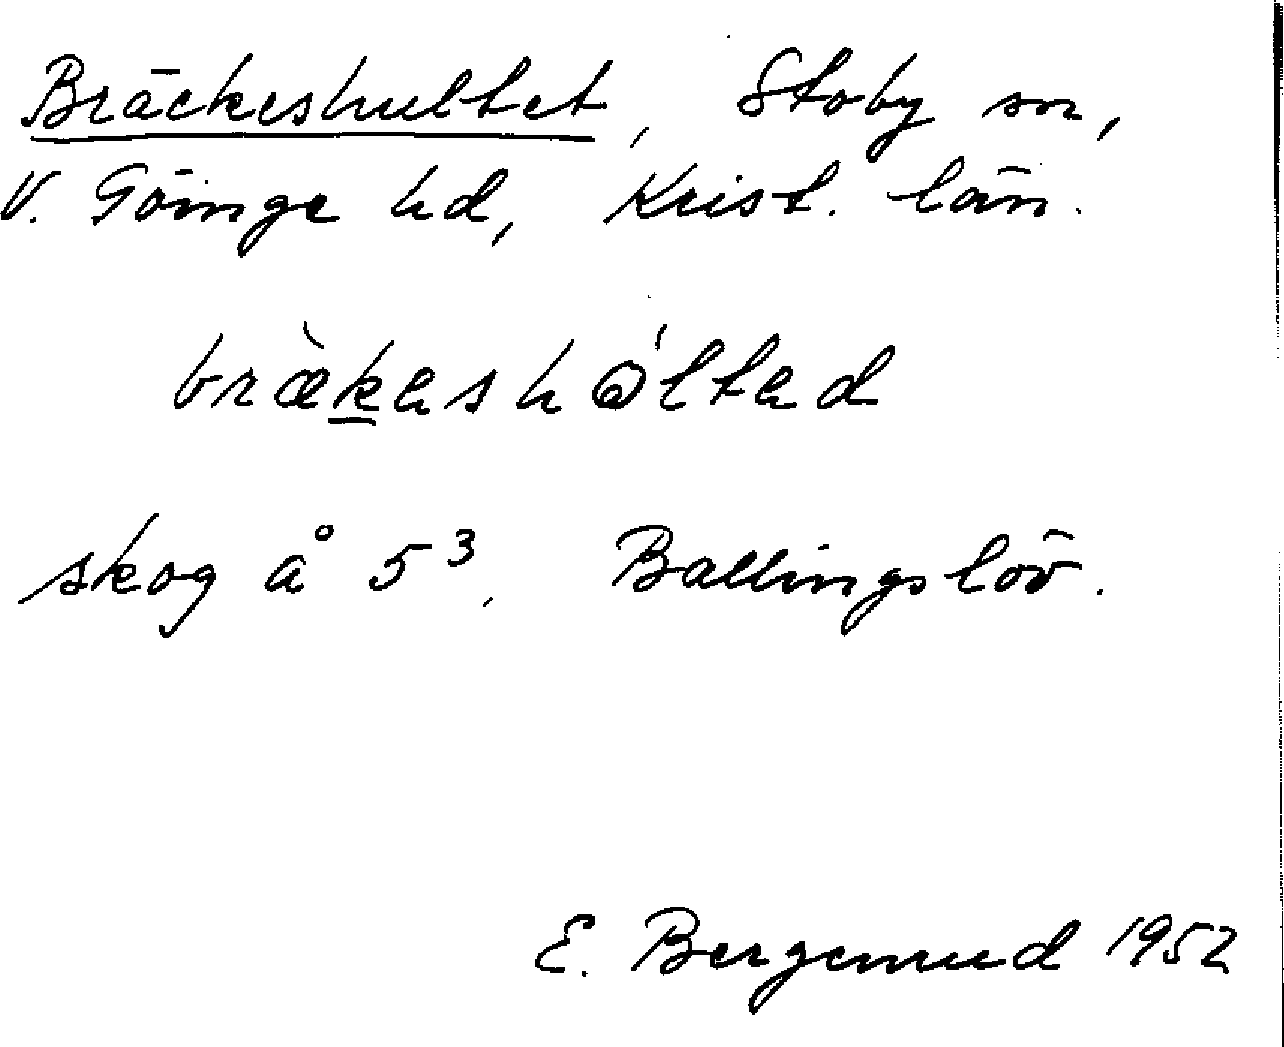 Bräckeshultet, Stoby sn,
V. Göinge hd, Krist. län.
bræ̀keshålted
skog å 5³. Ballingslöv.
E. Bergemund 1952